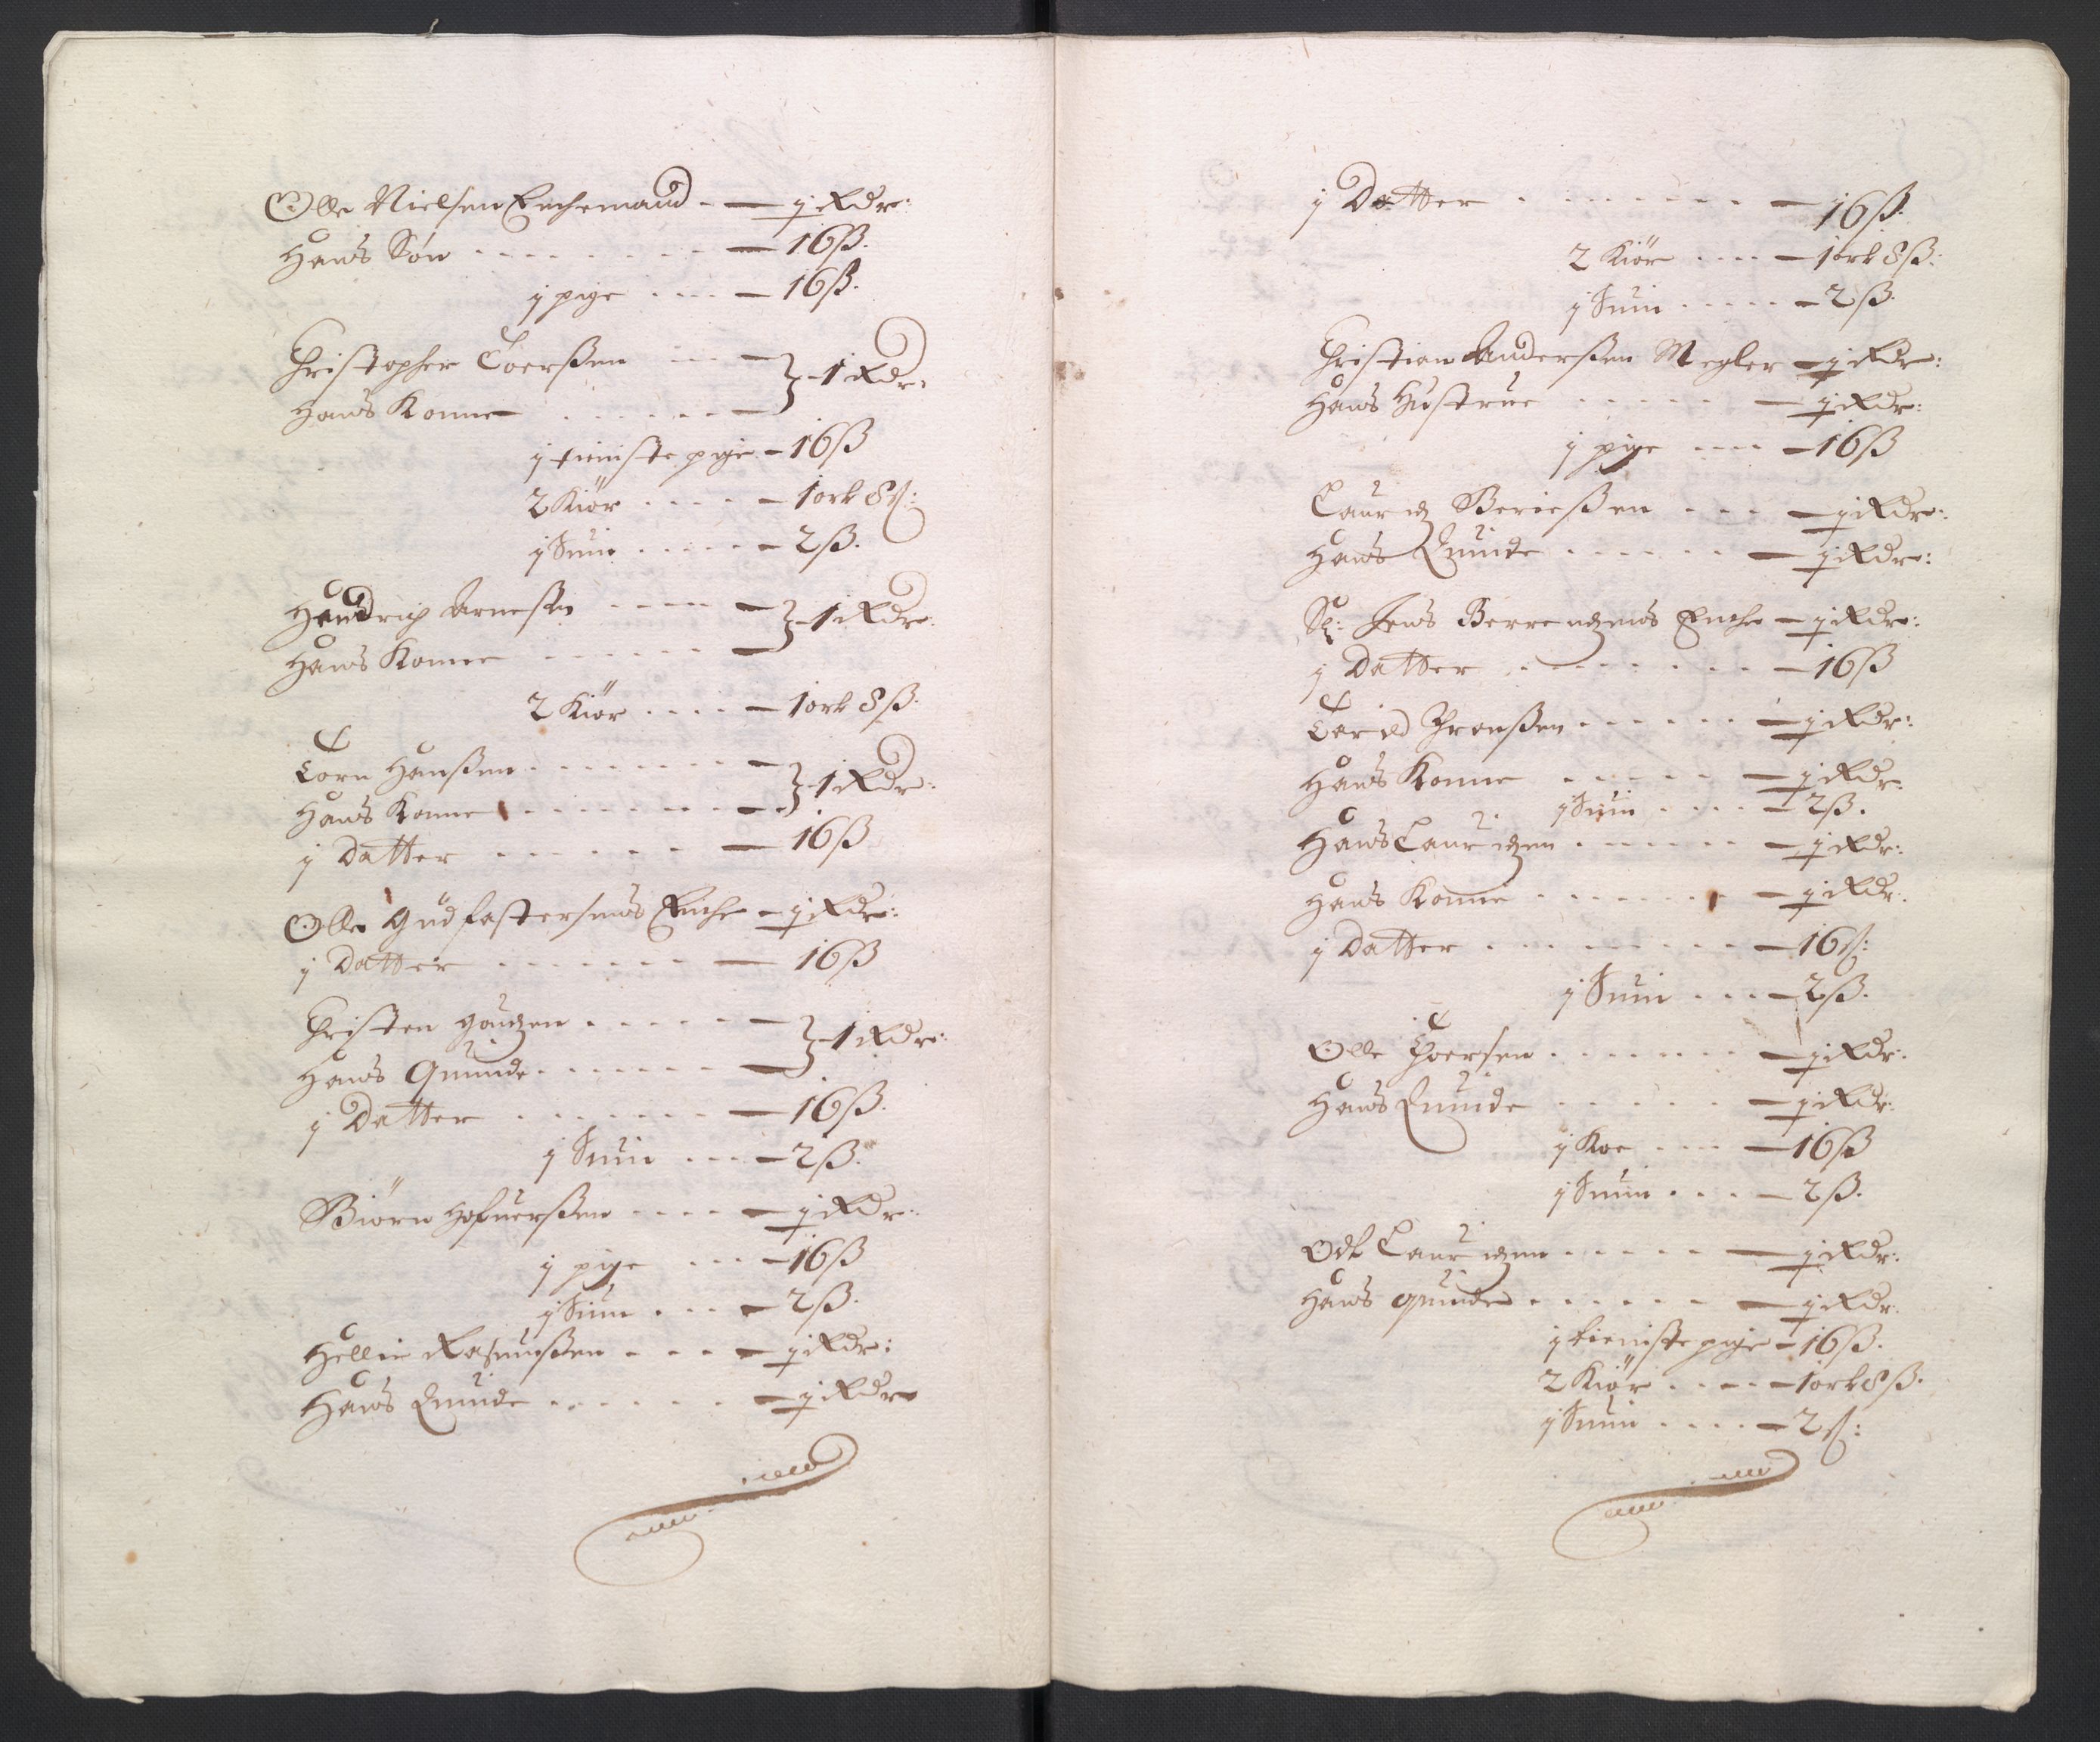 Olle Nielsen Enchemand - — j Rdr:
Hans Søn - - - - - — 16 ß.
j pige - - - — 16 ß.
Christopher Toerßen - - — } - 1 Rdr.
Hans Konne - - - - —
j tieniste pige - 16 ß
2 Kiör - - - — 1 ork 8 ß:
j Suin - - - - — 2 ß.
Hendrich Arneßen - - - — } - 1 Rdr:
Hans Konne - - - - —
2 Kiör - - - — 1 ork 8 ß.
Torn Hanßen - - - - — } - 1 Rdr:
Hans Konne - - - - —
j Datter - - - - - — 16 ß
Olle Gudfastersens Enche - j Rdr:
j Datter - - - - - — 16 ß
Christen - - - - — } - 1 Rdr:
Hans Quinde - - - - —
j Datter - - - - - — 16 ß.
j Suin - - - — 2 ß.
Biörn - - - — j Rdr:
j pige - - - — 16 ß
j Suin - - - — 2 ß.
Hellie Rasmußen - - - — j Rdr:
Hans Quinde - - - - — j Rdr
j Datter - - - - - — 16 ß.
2 Kiör - - - — 1 ork 8 ß:
j Suin - - - - — 2 ß.
Christian Anderßen Megler — j Rdr:
Hans Hustrue - - - - — j Rdr:
j pige - - - — 16 ß
Lauridz Berießen - - - — j Rdr:
Hans Quinde - - - - — j Rdr:
Sl: Jens Berrendzens Enche — j Rdr:
j Datter - - - - - — 16 ß
Toried - - - - — j Rdr:
Hans Konne - - - - — j Rdr
j Suin - - - — 2 ß.
Hans Lauridzen - - - - — j Rdr:
Hans Konne - - - - — j Rdr:
j Datter - - - - - — 16 ß:
j Suin - - - — 2 ß.
Olle Thoersen - - - - — j Rdr:
Hans Quinde - - - - — j Rdr:
j Koe - - - — 16 ß
j Suin - - - — 2 ß.
Odt Lauridzen - - - - — j Rdr:
Hans quinde - - - - — j Rdr.
j tieniste pige - 16 ß.
2 Kiör - - - — 1 ork 8 ß.
j Suin - - - - — 2 ß: